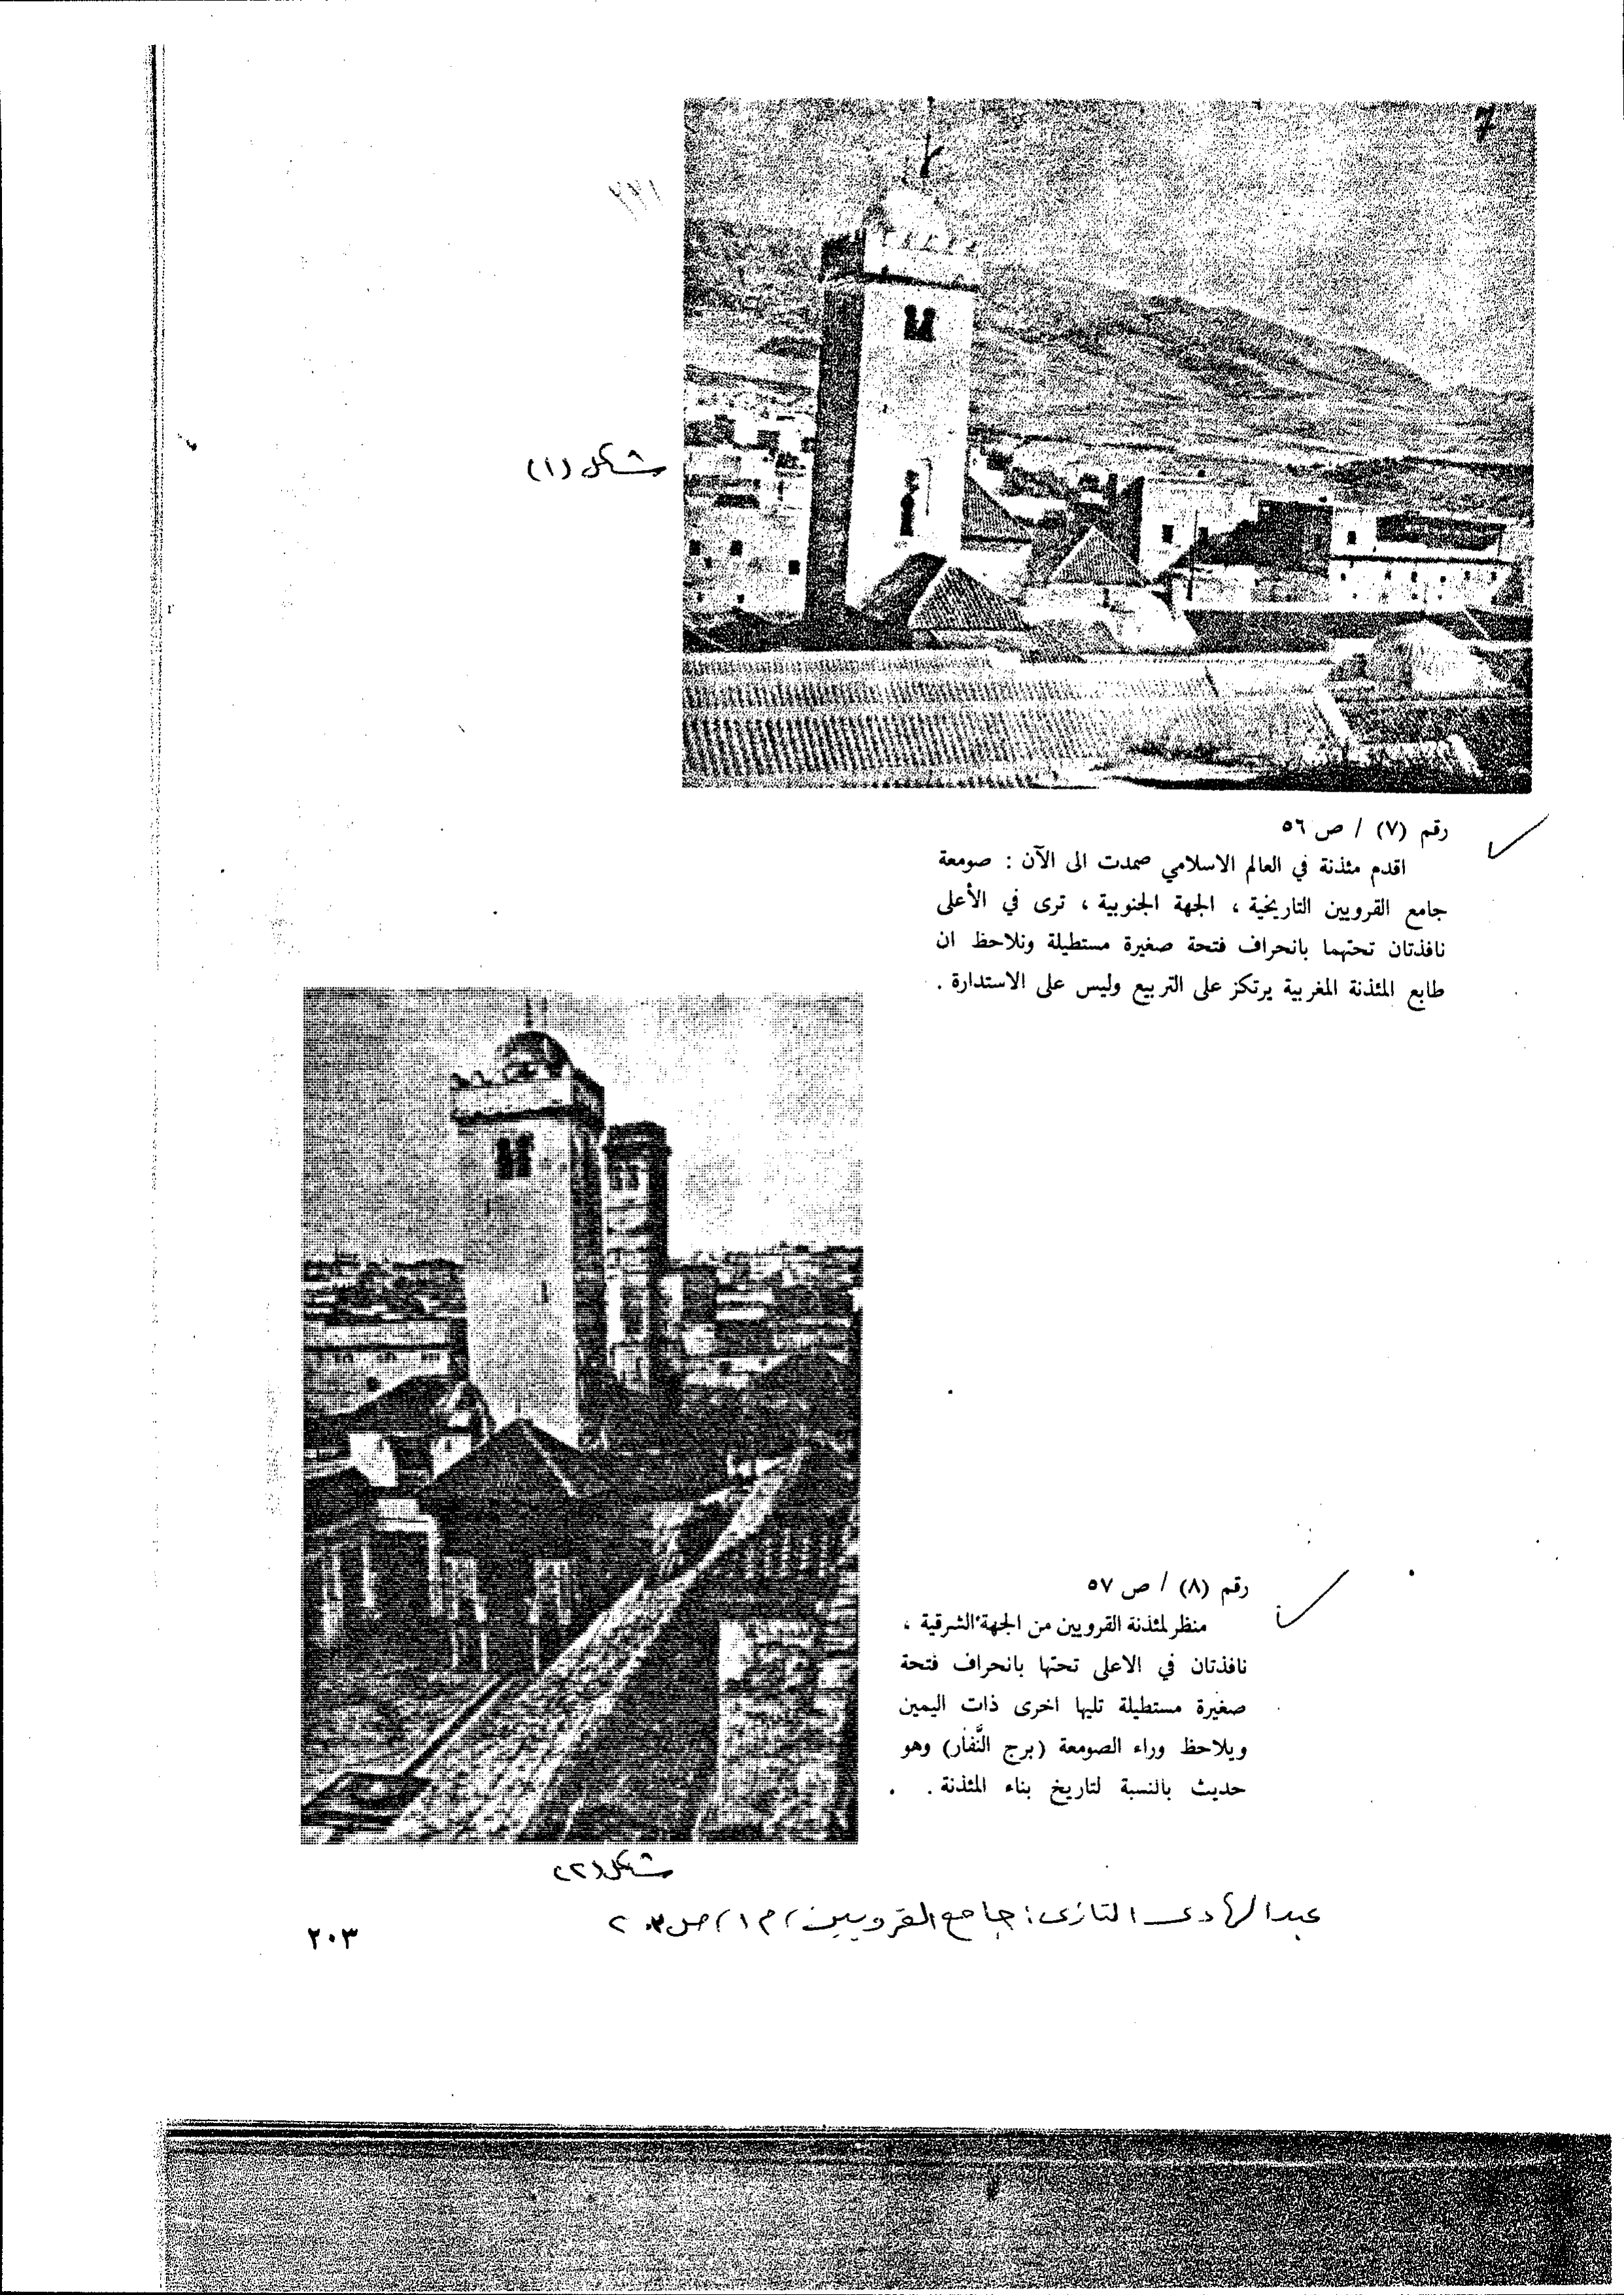 7
٢٧١
شكل (١)
رقم (٧) / ص ٥٦
اقدم مئذنة في العالم الاسلامي صمدت الى الآن : صومعة
جامع القرويين التاريخية ، الجهة الجنوبية ، ترى في الأعلى
نافذتان تحتهما بانحراف فتحة صغيرة مستطيلة ونلاحظ ان
طابع المئذنة المغربية يرتكز على التربيع وليس على الاستدارة .
رقم (٨) / ص ٥٧
منظر لمئذنة القرويين من الجهة الشرقية ،
نافذتان في الاعلى تحتها بانحراف فتحة
صغيرة مستطيلة تليها اخرى ذات اليمين
ويلاحظ وراء الصومعة (برج النَّفار) وهو
حديث بالنسبة لتاريخ بناء المئذنة .
شكل (٢)
عبد الهادى التازى : جامع القرويين / م ١ / ص ٢٠٣
٢٠٣